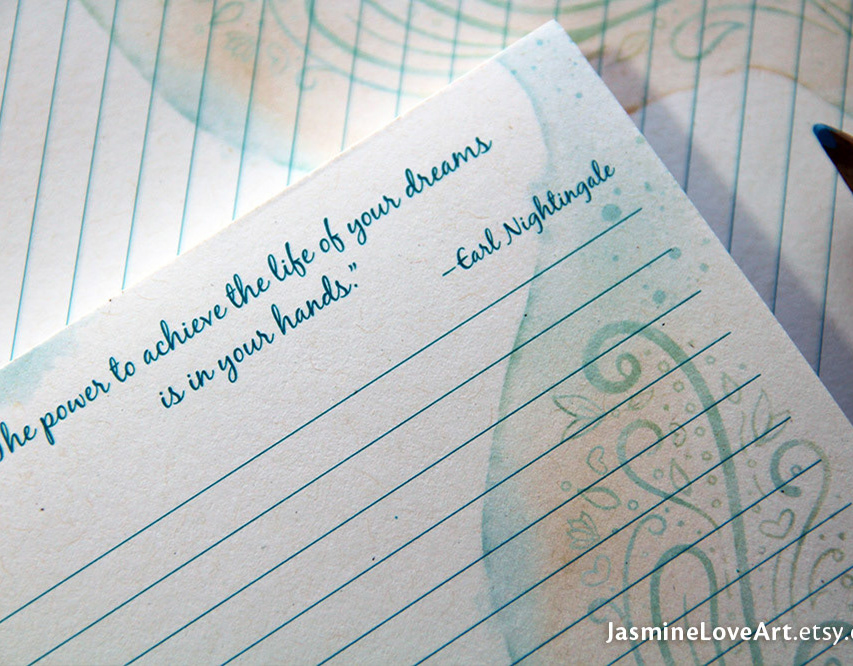 The power to achieve the life of your dreams
is in your hands."
–Earl Nightingale
JasmineLoveArt.etsy.c